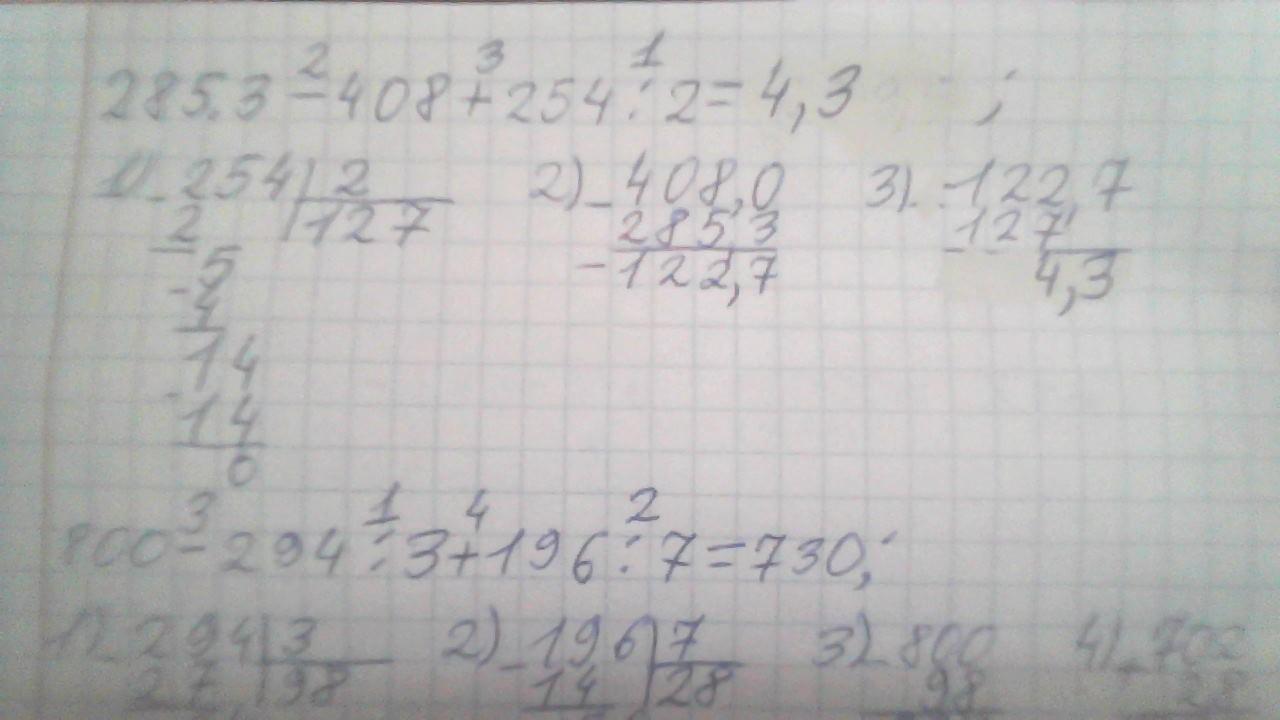 2 3 1
285.3 - 408 + 254 : 2 = 4,3 ;
1) - 254 | 2 2) - 408,0 3) - -122,7
2 | 127 285,3 127
- 5 -122,7 4,3
4
- 14
14
0
3 1 4 2
800 - 294 : 3 + 196 : 7 = 730;
1) - 294 | 3 2) - 196 | 7 3) - 800 4) - 702
27 | 98 14 | 28 98 28